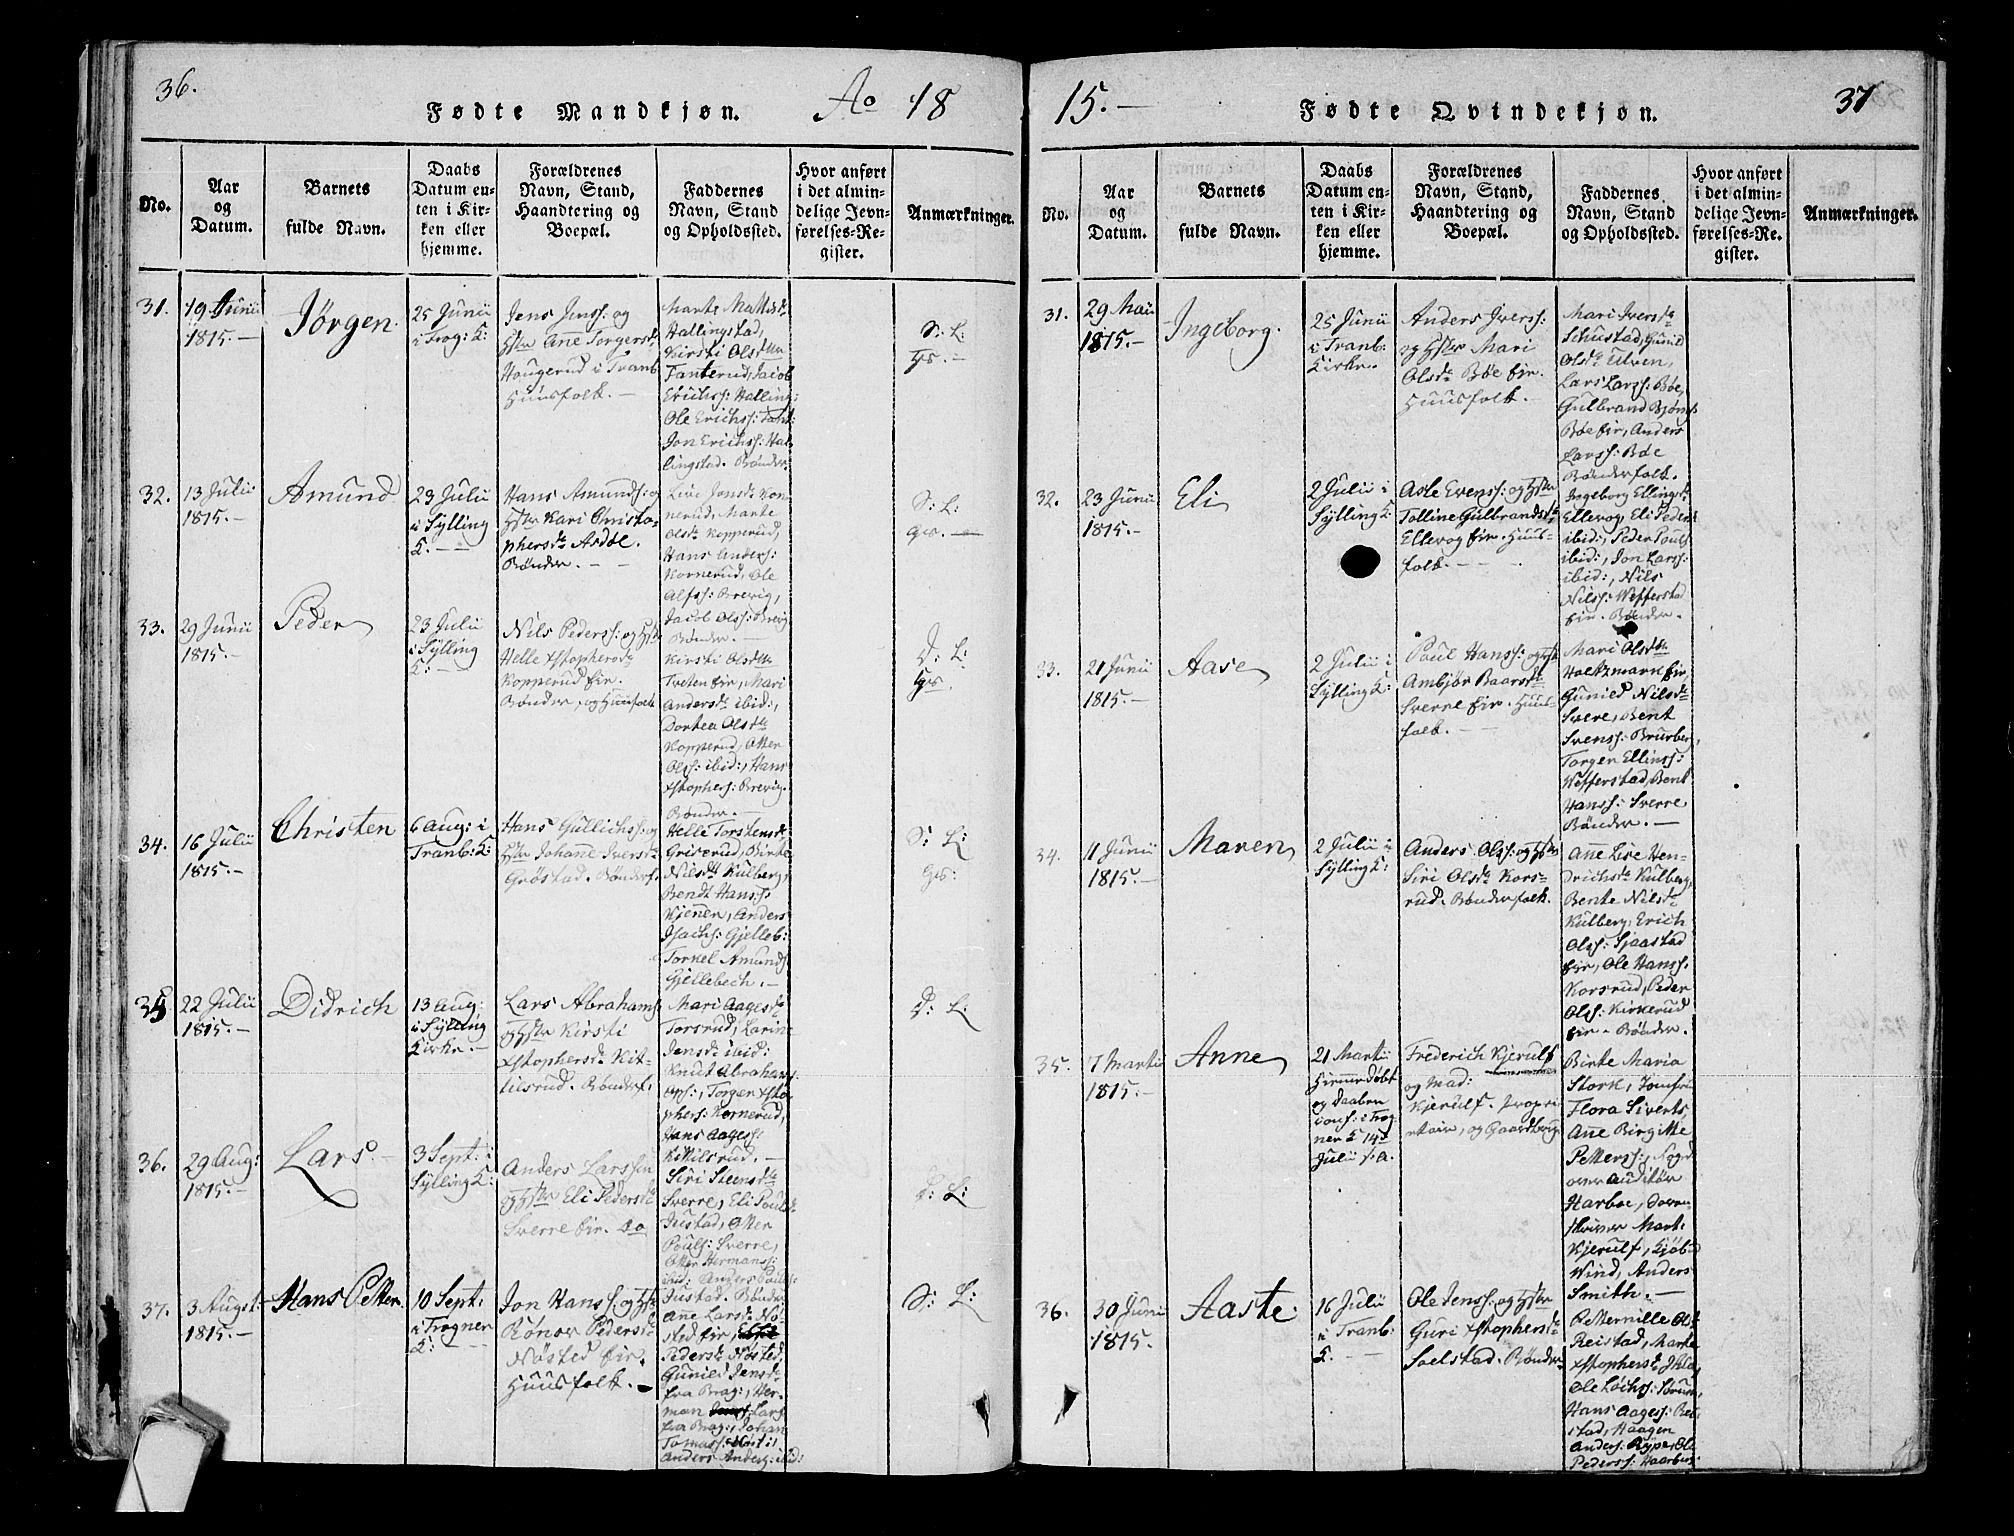 36.
Fødte Mandkjøn.
Ao 18
No.
Aar
og
Datum.
Barnets
fulde Navn.
Daabs
Datum en-
ten i Kir-
ken eller
hjemme.
Forældrenes
Navn, Stand,
Haandtering og
Boepæl.
Faddernes
Navn, Stand
og Opholdssted.
Hvor anført
i det almin-
delige Jevn-
førelses-Re-
gister.
Anmærkninger.
31.
19 Junii
1815.—
Jörgen.
25 Junii
i Trog: K:
Jens Jenss: og
Hstr Anne Torgersd:
Hougerud i Tranb
Huusfolk. —
Marte Mattisd:
Hallingstad,
Kirsti Olsdttr
Fanterud, Jacob
Erichss: Halling:
Ole Erichss: Fant:
Jon Erichss: Hal-
lingstad. Bönder.
S: L:
32.
13 Julii
1815.—
Amund
23 Julii
i Sylling
K. — —
Hans Amunds: og
Hstr Kari Christo-
phersdt Asdöl.
Bönder. — —
Live Jensdt Kor-
nerud, Marte
Olsdt Kopperud,
Hans Anders:
Kornerud, Ole
Alfss: Brevig,
Jacob Olss: Brevig
Bönder. —
S: L:
33.
29 Junii
1815.—
Peder
23 Julii
i Sylling
K: —
Nils Pederss: og Hstr
Helle Xstophersdt
Kopperud Eir.
Bönder, og Huusfolk
Kirsti Olsdttr
Treten Eir, Mari
Andersdt ibid:,
Dortea Olsdt
Kopperud, Otter
Olss: ibid:, Hans
Xstophers: Brevig.
Bönder. —
D: L:
34.
16 Julii
1815.—
Christen
6 Aug: i
Tranb: K:
Hans Gullichss: og
Hstr Johane Iversdt
Gröstad. Bönderf.
Helle Torstensdt
Griserud, Birte
Nilsdt Kulberg,
Bendt Hanss:
Kjener, Anders
Isachs: Gjelleb:
Torkel Amunds
Gjellebech. —
S: L:
35
22 Julii
1815.—
Didrich
13 Aug:
i Sylling
Kirke. —
Lars Abrahams:
og Hstr Kirsti
Xstophersdt Kit-
tilsrud. Bönderf.
Mari Aagesdt
Torsrud, Karin
Jensdt ibid:
Knut Abrahams:
Torgen Xsto
phers: Kornerud,
Hans Aages:
Kittilsrud. —
D: L:
36.
29 Aug:
1815.—
Lars. —
3 Sept: i
Sylling K:
Anders Larssen
og Hstr Eli Pedersdt
Sverre Eir. do
Siri Steensdt
Sverre, Eli Poulsdt
Justad, Otter
Pouls: Sverre,
Otter Hermans:
ibid: Anders Pouls:
Justad. Bönder
D: L:
37.
3 August:
1815.—
Hans Petter.
10 Sept:
i Trogner
K: — —
Jon Hanss: og Hstr
Rönor Pedersdt
Nösted Eir.
Huusfolk. —
Anne Larsdt Nö-
sted Eir,
Pedersdt Nösted,
Gunild Jensdt
fra Brag:, Her-
man Lars:
fra Brag:, Johan
Tomass:
Anders Anders: ibid:
S: L:
15. —
Fødte Qvindekjøn.
37
No.
Aar
og
Datum.
Barnets
fulde Navn.
Daabs
Datum en-
ten i Kir-
ken eller
hjemme.
Forældrenes
Navn, Stand,
Haandtering og
Boepæl.
Faddernes
Navn, Stand
og Opholdssted.
Hvor anført
i det almin-
delige Jevn-
førelses-Re-
gister.
Anmærkninger.
31.
29 Maii
1815.—
Ingeborg.
25 Junii
i Tranb:
Kirke.
Anders Iverss:
og Hstr Mari
Olsdt Böe Eir.
Huusfolk. —
Mari Iversdt
Schustad, Gunild
Olsdt Ulven,
Lars Larss: Böe,
Gulbrand Björns:
Böe Eir, Anders
Larss: Böe
Bönderfolk. —
32.
23 Junii
1815.—
Eli
2 Julii i
Sylling K:
Asle Evenss: og Hstr
Tolline Gulbrandsdt
Ellevog Eir. Huus-
folk. — —
Ingeborg Ellingsdt
Ellevog, Eli Pedersdt
ibid:, Peder Pouls:
ibid:, Jon Larss:
ibid:, Nils
Nilss: Wefferstad
Eir. Bönder.
33.
21 Junii
1815.—
Aase
2 Julii i
Sylling K:
Poul Hanss: og Hstr
Ambjör Baarsdt
Sverre Eir. Huus-
folk. — —
Mari Olsdttr
Holtzmark Eir,
Gunild Nilsdt
Svere, Bent
Svenss: Brurberg,
Torgen Ellinss:
Wefferstad, Bent
Hanss: Sverre
Bönder. —
34.
11 Junii
1815.—
Maren
2 Julii i
Sylling K:
Anders Olss: og Hstr
Siri Olsdt Kors-
rud. Bönderfolk.
Anne Live Hen-
drichsdt Kulberg,
Bente Nilsdt
Kulberg, Erich
Olss: Sjaastad
Eir, Ole Hanss:
Korsrud, Peder
Olss: Kirkerud
Eir. Bönder.
35.
7 Martii
1815.—
Anne
21 Martii
hiemmedöbt
og Daaben
conf: i Trog
ner K 14d
Julii s. a.
Frederich Kjerulf
og Mad:
Kjerulf. Propri-
etair, og Gaardbrug
Birte Maria
Stork, Jomfru
Flora Siverts,
Anne Birgitte
Petterss:,
over Auditör
Harboe, Soren-
skriver Mart:
Kjerulf, Kjöb
Wind, Anders
Smith. —
36.
30 Junii
1815.
Aaste.
16 Julii
i Tranb:
K. — —
Ole Jenss: og Hstr
Guri Xstophersdt
Solstad. Bönder
Petternille Ols
Reistad, Marte
Xstophersdt
Ole
Hans Aages: Rei-
stad, Haagen
Anders:
Pederss: